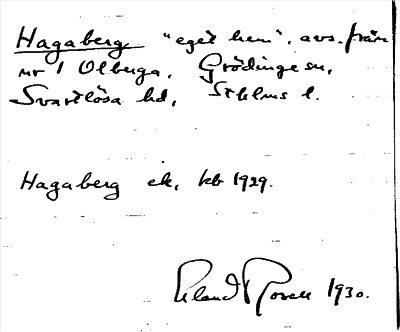 Hagaberg "eget hem", avs. från
nr 1 Olberga, Grödinge sn,
Svartlösa hd, Sthlms l.
Hagaberg ek, kb 1929.
Rosell 1930.